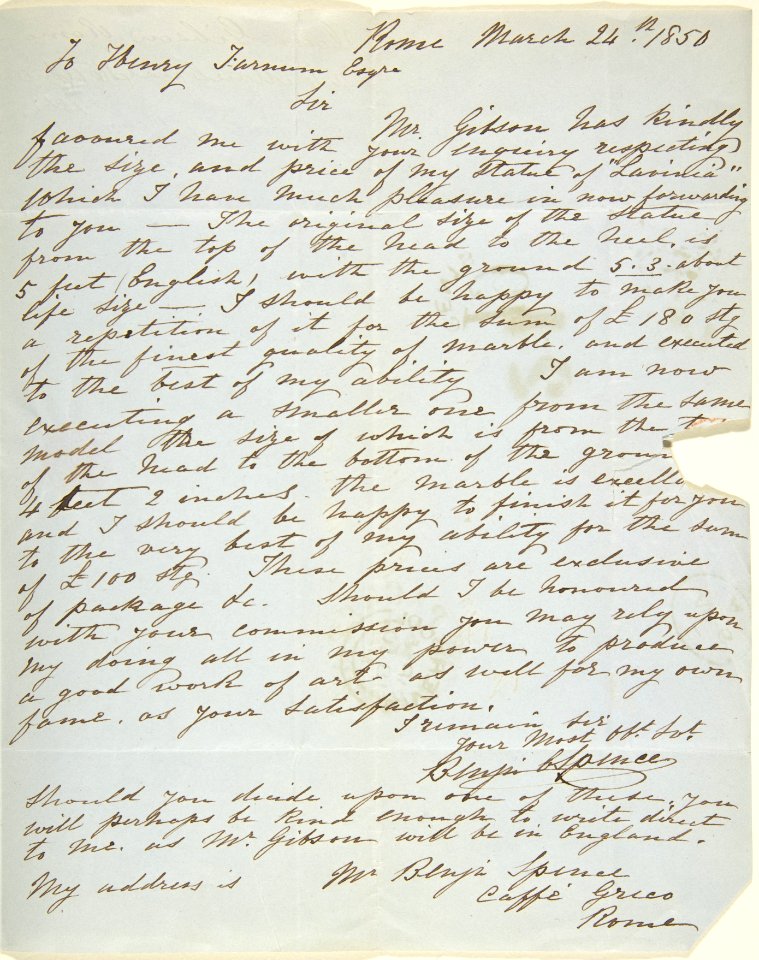 Rome March 24.th 1850
To Henry Farnum Esqre
Sir
Mr. Gibson has kindly
favoured me with your inquiry respecting
the size, and price of my statue of "Lavinia"
which I have much pleasure in now forwarding
to you — The original size of the statue
from the top of the head to the heel, is
5 feet (English) with the ground 5.3. about
life size — I should be happy to make you
a repetition of it for the sum of £180 stg
of the finest quality of marble, and executed
to the best of my ability I am now
executing a smaller one from the same
model the size of which is from the
of the head to the bottom of the groun
4 feet 2 inches. the marble is excelle
and I should be happy to finish it for you
to the very best of my ability for the sum
of £100 stg. These prices are exclusive
of package &c. Should I be honoured
with your commission you may rely upon
my doing all in my power to produce
a good work of art as well for my own
fame, as your satisfaction.
I remain Sir
your Most Obt. Svt.
Benjn Spence
Should you decide upon one of these, you
will perhaps be kind enough to write direct
to me. as Mr. Gibson will be in England.
My address is Mr Benjn Spence
Caffé Greco
Rome